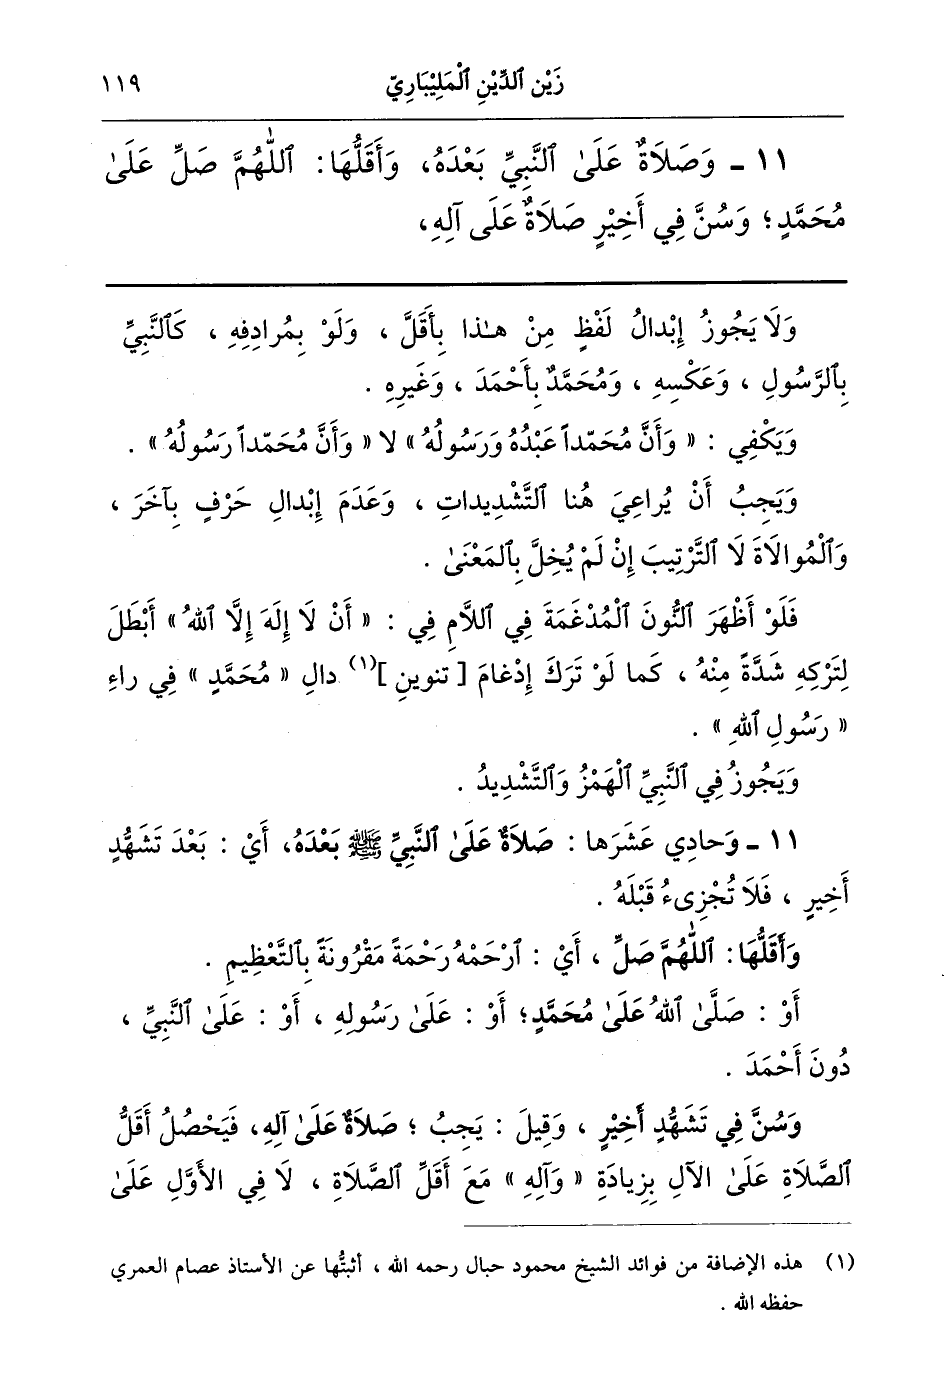 زَيْن ٱلدِّيْنِ ٱلْمَلِيْبَارِيّ ١١٩
١١ ـ وَصَلَاةٌ عَلَىٰ ٱلنَّبِيِّ بَعْدَهُ، وَأَقَلُّهَا: ٱللّٰهُمَّ صَلِّ عَلَىٰ
مُحَمَّدٍ؛ وَسُنَّ فِي أَخِيْرٍ صَلَاةٌ عَلَى آلِهِ،
وَلَا يَجُوزُ إِبْدالُ لَفْظٍ مِنْ هـٰذا بِأَقَلَّ ، وَلَوْ بِمُرادِفِهِ ، كَٱلنَّبِيِّ
بِٱلرَّسُولِ ، وَعَكْسِهِ ، وَمُحَمَّدٌ بِأَحْمَدَ ، وَغَيرِهِ .
وَيَكْفِي : « وَأَنَّ مُحَمّداً عَبْدُهُ وَرَسُولُهُ » لا « وَأَنَّ مُحَمّداً رَسُولُهُ » .
وَيَجِبُ أَنْ يُراعِيَ هُنا ٱلتَّشْدِيداتِ ، وَعَدَمَ إِبْدالِ حَرْفٍ بِآخَرَ ،
وَٱلْمُوالَاةَ لَا ٱلتَّرْتِيبَ إِنْ لَمْ يُخِلَّ بِٱلمَعْنَىٰ .
فَلَوْ أَظْهَرَ ٱلنُّونَ ٱلْمُدْغَمَةَ فِي ٱللَّامِ فِي : « أَنْ لَا إِلَهَ إِلَّا ٱللهُ » أَبْطَلَ
لِتَرْكِهِ شَدَّةً مِنْهُ ، كَما لَوْ تَرَكَ إِدْغامَ [ تنوينِ ](١) دالِ « مُحَمَّدٍ » فِي راءِ
« رَسُولِ ٱللهِ » .
وَيَجُوزُ فِي ٱلنَّبِيِّ ٱلْهَمْزُ وَٱلتَّشْدِيدُ .
١١ ـ وَحادِي عَشَرَها : صَلاَةٌ عَلَىٰ ٱلنَّبِيِّ ﷺ بَعْدَهُ، أَيْ : بَعْدَ تَشَهُّدٍ
أَخِيرٍ ، فَلَا تُجْزِىءُ قَبْلَهُ .
وَأَقَلُّهَا: ٱللّٰهُمَّ صَلِّ ، أَيْ : ٱرْحَمْهُ رَحْمَةً مَقْرُونَةً بِٱلتَّعْظِيمِ .
أَوْ : صَلَّىٰ ٱللهُ عَلَىٰ مُحَمَّدٍ؛ أَوْ : عَلَىٰ رَسُولِهِ ، أَوْ : عَلَىٰ ٱلنَّبِيِّ ،
دُونَ أَحْمَدَ .
وَسُنَّ فِي تَشَهُّدٍ أَخِيْرٍ ، وَقِيلَ : يَجِبُ ؛ صَلَاةٌ عَلَىٰ آلِهِ، فَيَحْصُلُ أَقَلُّ
ٱلصَّلَاةِ عَلَىٰ الآلِ بِزِيادَةِ « وَآلِهِ » مَعَ أَقَلِّ ٱلصَّلَاةِ ، لَا فِي الأَوَّلِ عَلَىٰ
(١) هذه الإضافة من فوائد الشيخ محمود حبال رحمه الله ، أثبتُّها عن الأستاذ عصام العمري
حفظه الله .